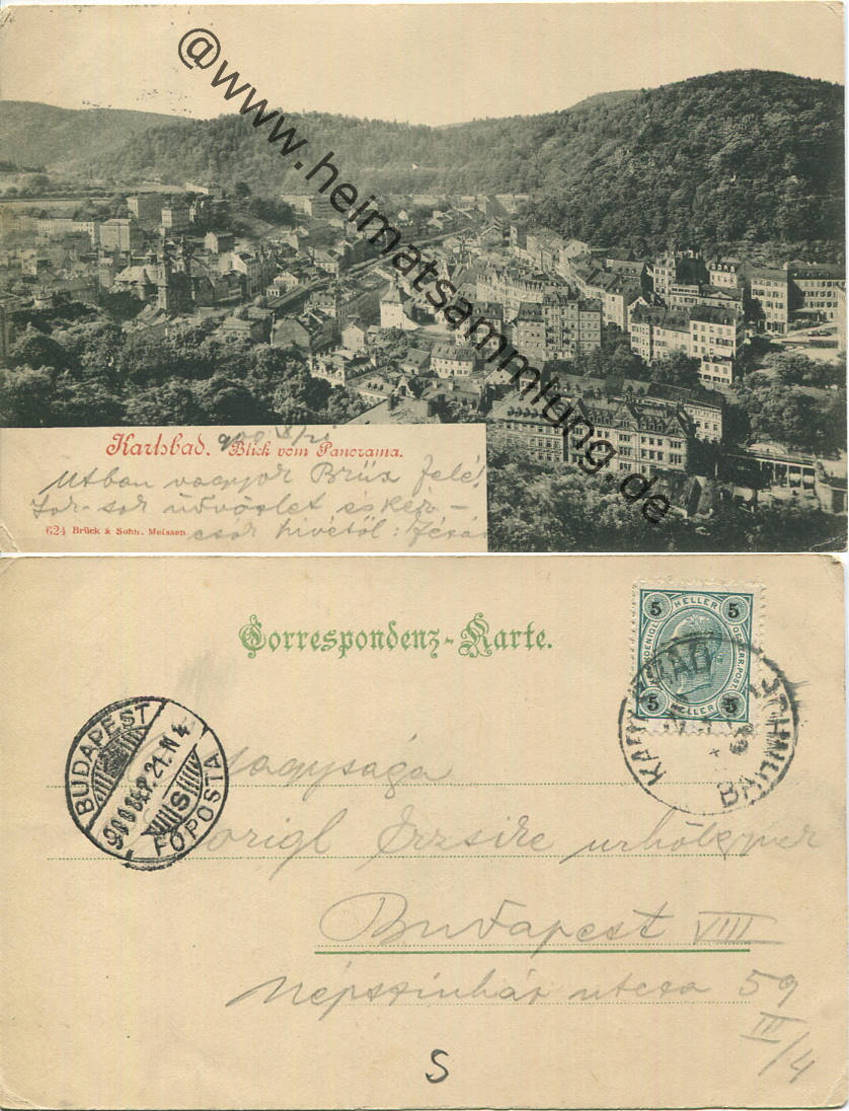 @www.heimatsammlung.de
Karlsbad. Blick vom Panorama.
Utban vagyok Brüx felé!
Sok-sok üdvözlet és kéz-
csók hívétől:
624 Brück & Sohn, Meissen
Correspondenz-Karte.
5 HELLER 5
KAIS. KOENIGL. OESTERR. POST
5 HELLER 5
BUDAPEST
900 SZEP. 21. N 4
S
FŐPOSTA
Nagysága
Erzsike urhölgynek
Budapest VIII
Népszínház utcza 59
III/4
S